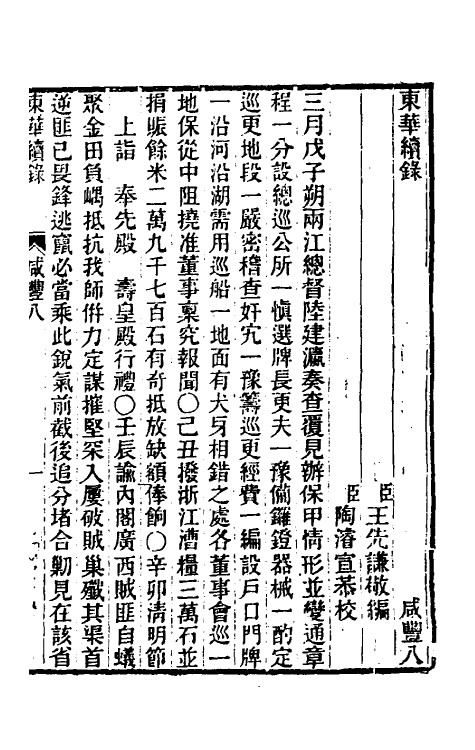 東華續錄　咸豐八
臣王先謙敬編
臣陶濬宣恭校
三月戊子朔兩江總督陸建瀛奏查覆見辦保甲情形並變通章
程一分設總巡公所一愼選牌長更夫一豫備鑼鐙器械一酌定
巡更地段一嚴密稽查奸宄一豫籌巡更經費一編設戸口門牌
一沿河沿湖需用巡船一地面有犬牙相錯之處各董事會巡一
地保從中阻撓准董事稟究報聞〇己丑撥浙江漕糧三萬石並
捐賑餘米二萬九千七百石有奇抵放缺額俸餉〇辛卯淸明節
上詣　奉先殿　壽皇殿行禮〇壬辰諭內閣廣西賊匪自蟻
聚金田負嵎抵抗我師倂力定謀摧堅深入屢破賊巢殲其渠首
逆匪已畏鋒逃竄必當乘此銳氣前截後追分堵合勦見在該省
東華續錄　咸豐八　一